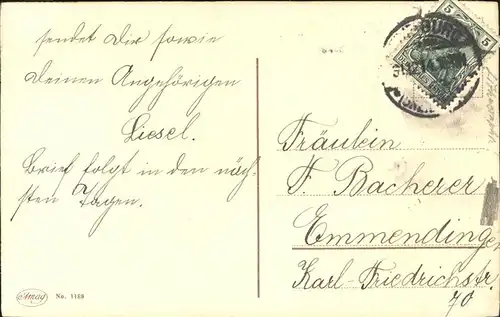 sendet Dir sowie
Deinen Angehörigen
Liesel.
Brief folgt in den näch-
sten Tagen.
Fräulein
F. Bacherer
Emmendingen
Karl-Friedrichstr.
70
Amag No. 1169
5 5